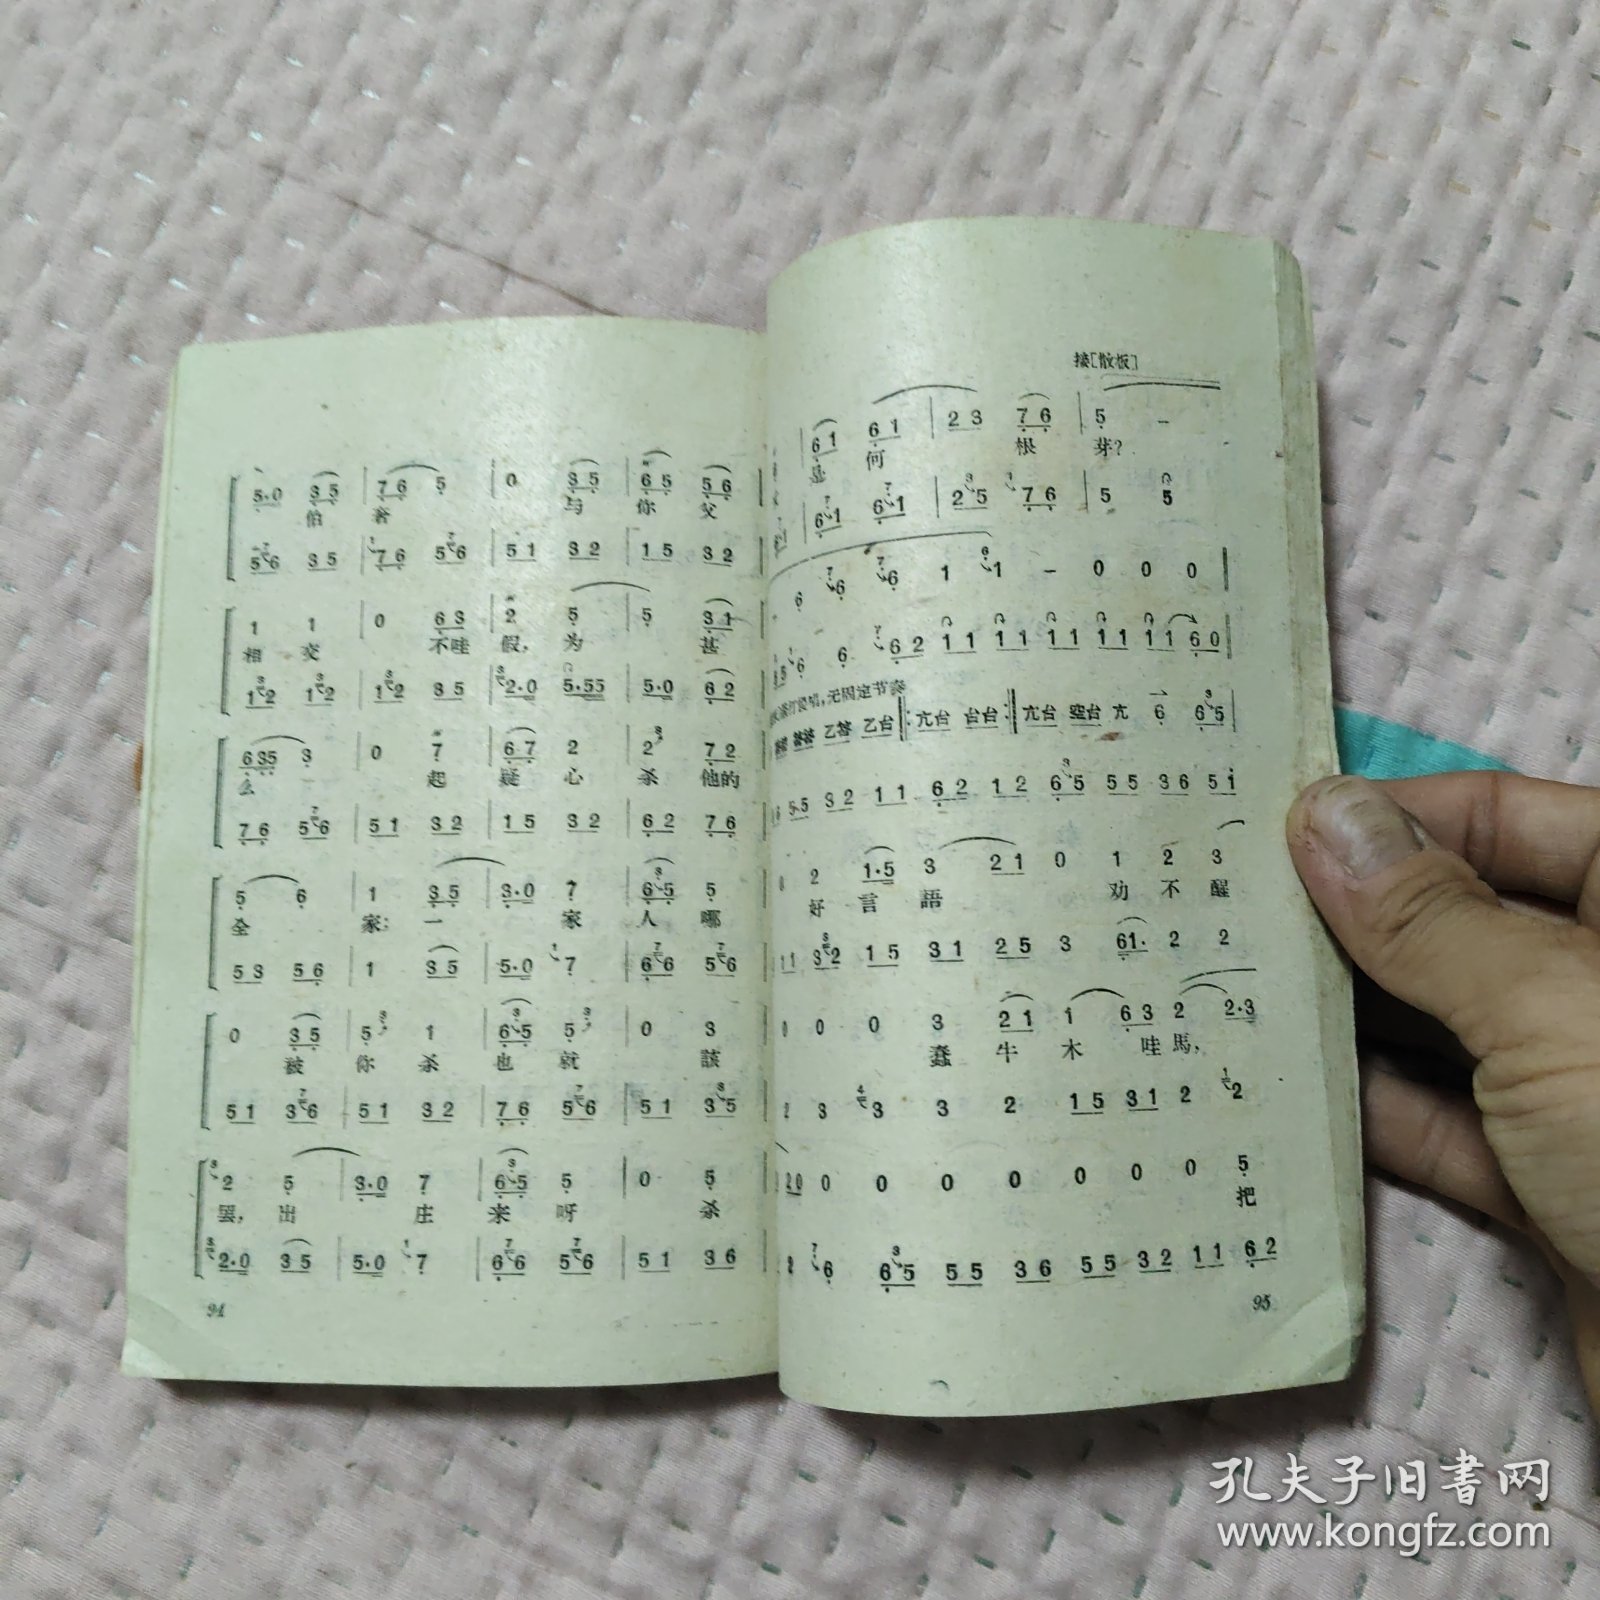 5·0 3 5 7 6 5 0 3 5 6 5 5 6
伯 奢 与 你 交
5 7 6 3 5 7 6 5 7 6 5 1 3 2 1 5 3 2
1 1 0 6 3 2 5 5 3 1
相 交 不哇 假, 为 甚
1 3 2 1 3 2 1 3 2 3 5 3 2·0 5·55 5·0 6 2
6 3 5 3 0 7 6 7 2 2 3 7 2
么 起 疑 心 杀 他的
7 6 5 7 6 5 1 3 2 1 5 3 2 6 2 7 6
5 6 1 3 5 3·0 7 6 3 5 5
全 家; 一 家 人 哪
5 3 5 6 1 3 5 5·0 1 7 6 7 6 5 7 6
0 3 5 5 3 1 6 3 5 5 3 0 3
被 你 杀 也 就 該
5 1 3 7 6 5 1 3 2 7 6 5 7 6 5 1 3 3 5
3 2 5 3·0 7 6 3 5 5 0 5
罢, 出 庄 来 呀 杀
3 2·0 3 5 5·0 1 7 6 7 6 5 7 6 5 1 3 6
94
接[散板]
6 1 6 1 2 3 7 6 5 －
是 何 根 芽?
6 1 6 7 1 2 3 5 7 6 5 5
6 7 6 7 6 1 6 1 － 0 0 0
6 6 7 6 2 1 1 1 1 1 1 1 1 1 1 6 0
唱, 无固定节奏
答答 乙答 乙台 亢台 台台 亢台 空台 亢 6 6 3 5
5·5 3 2 1 1 6 2 1 2 6 3 5 5 5 3 6 5 1
0 2 1·5 3 2 1 0 1 2 3
好 言 語 劝 不 醒
1 1 3 3 2 1 5 3 1 2 5 3 6 1· 2 2
0 0 0 3 2 1 1 6 3 2 2·3
蠢 牛 木 哇 馬,
2 3 4 3 3 2 1 5 3 1 2 1 2
2 0 0 0 0 0 0 0 0 0 5
把
2 7 6 6 3 5 5 5 3 6 5 5 3 2 1 1 6 2
95
孔夫子旧书网
www.kongfz.com